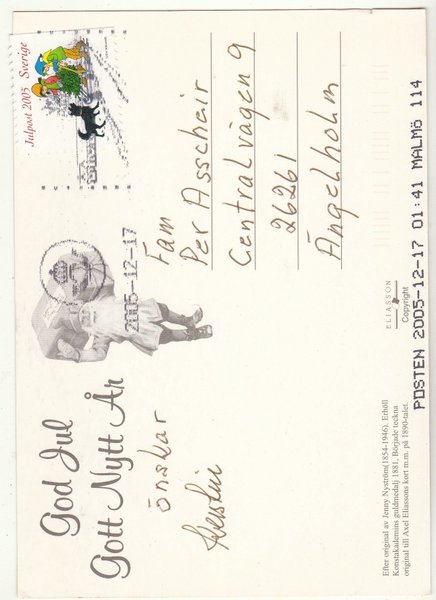 God Jul
Gott Nytt År
önskar
Kerstin
Julpost 2005 Sverige
2005-12-17
Fam
Per Asscheir
Centralvägen 9
26261
Ängelholm
Efter original av Jenny Nyström(1854-1946). Erhöll
Konstakademins guldmedalj 1881, Började teckna
original till Axel Eliassons kort m.m. på 1890-talet.
ELIASSON
Copyright
POSTEN 2005-12-17 01:41 MALMÖ 114